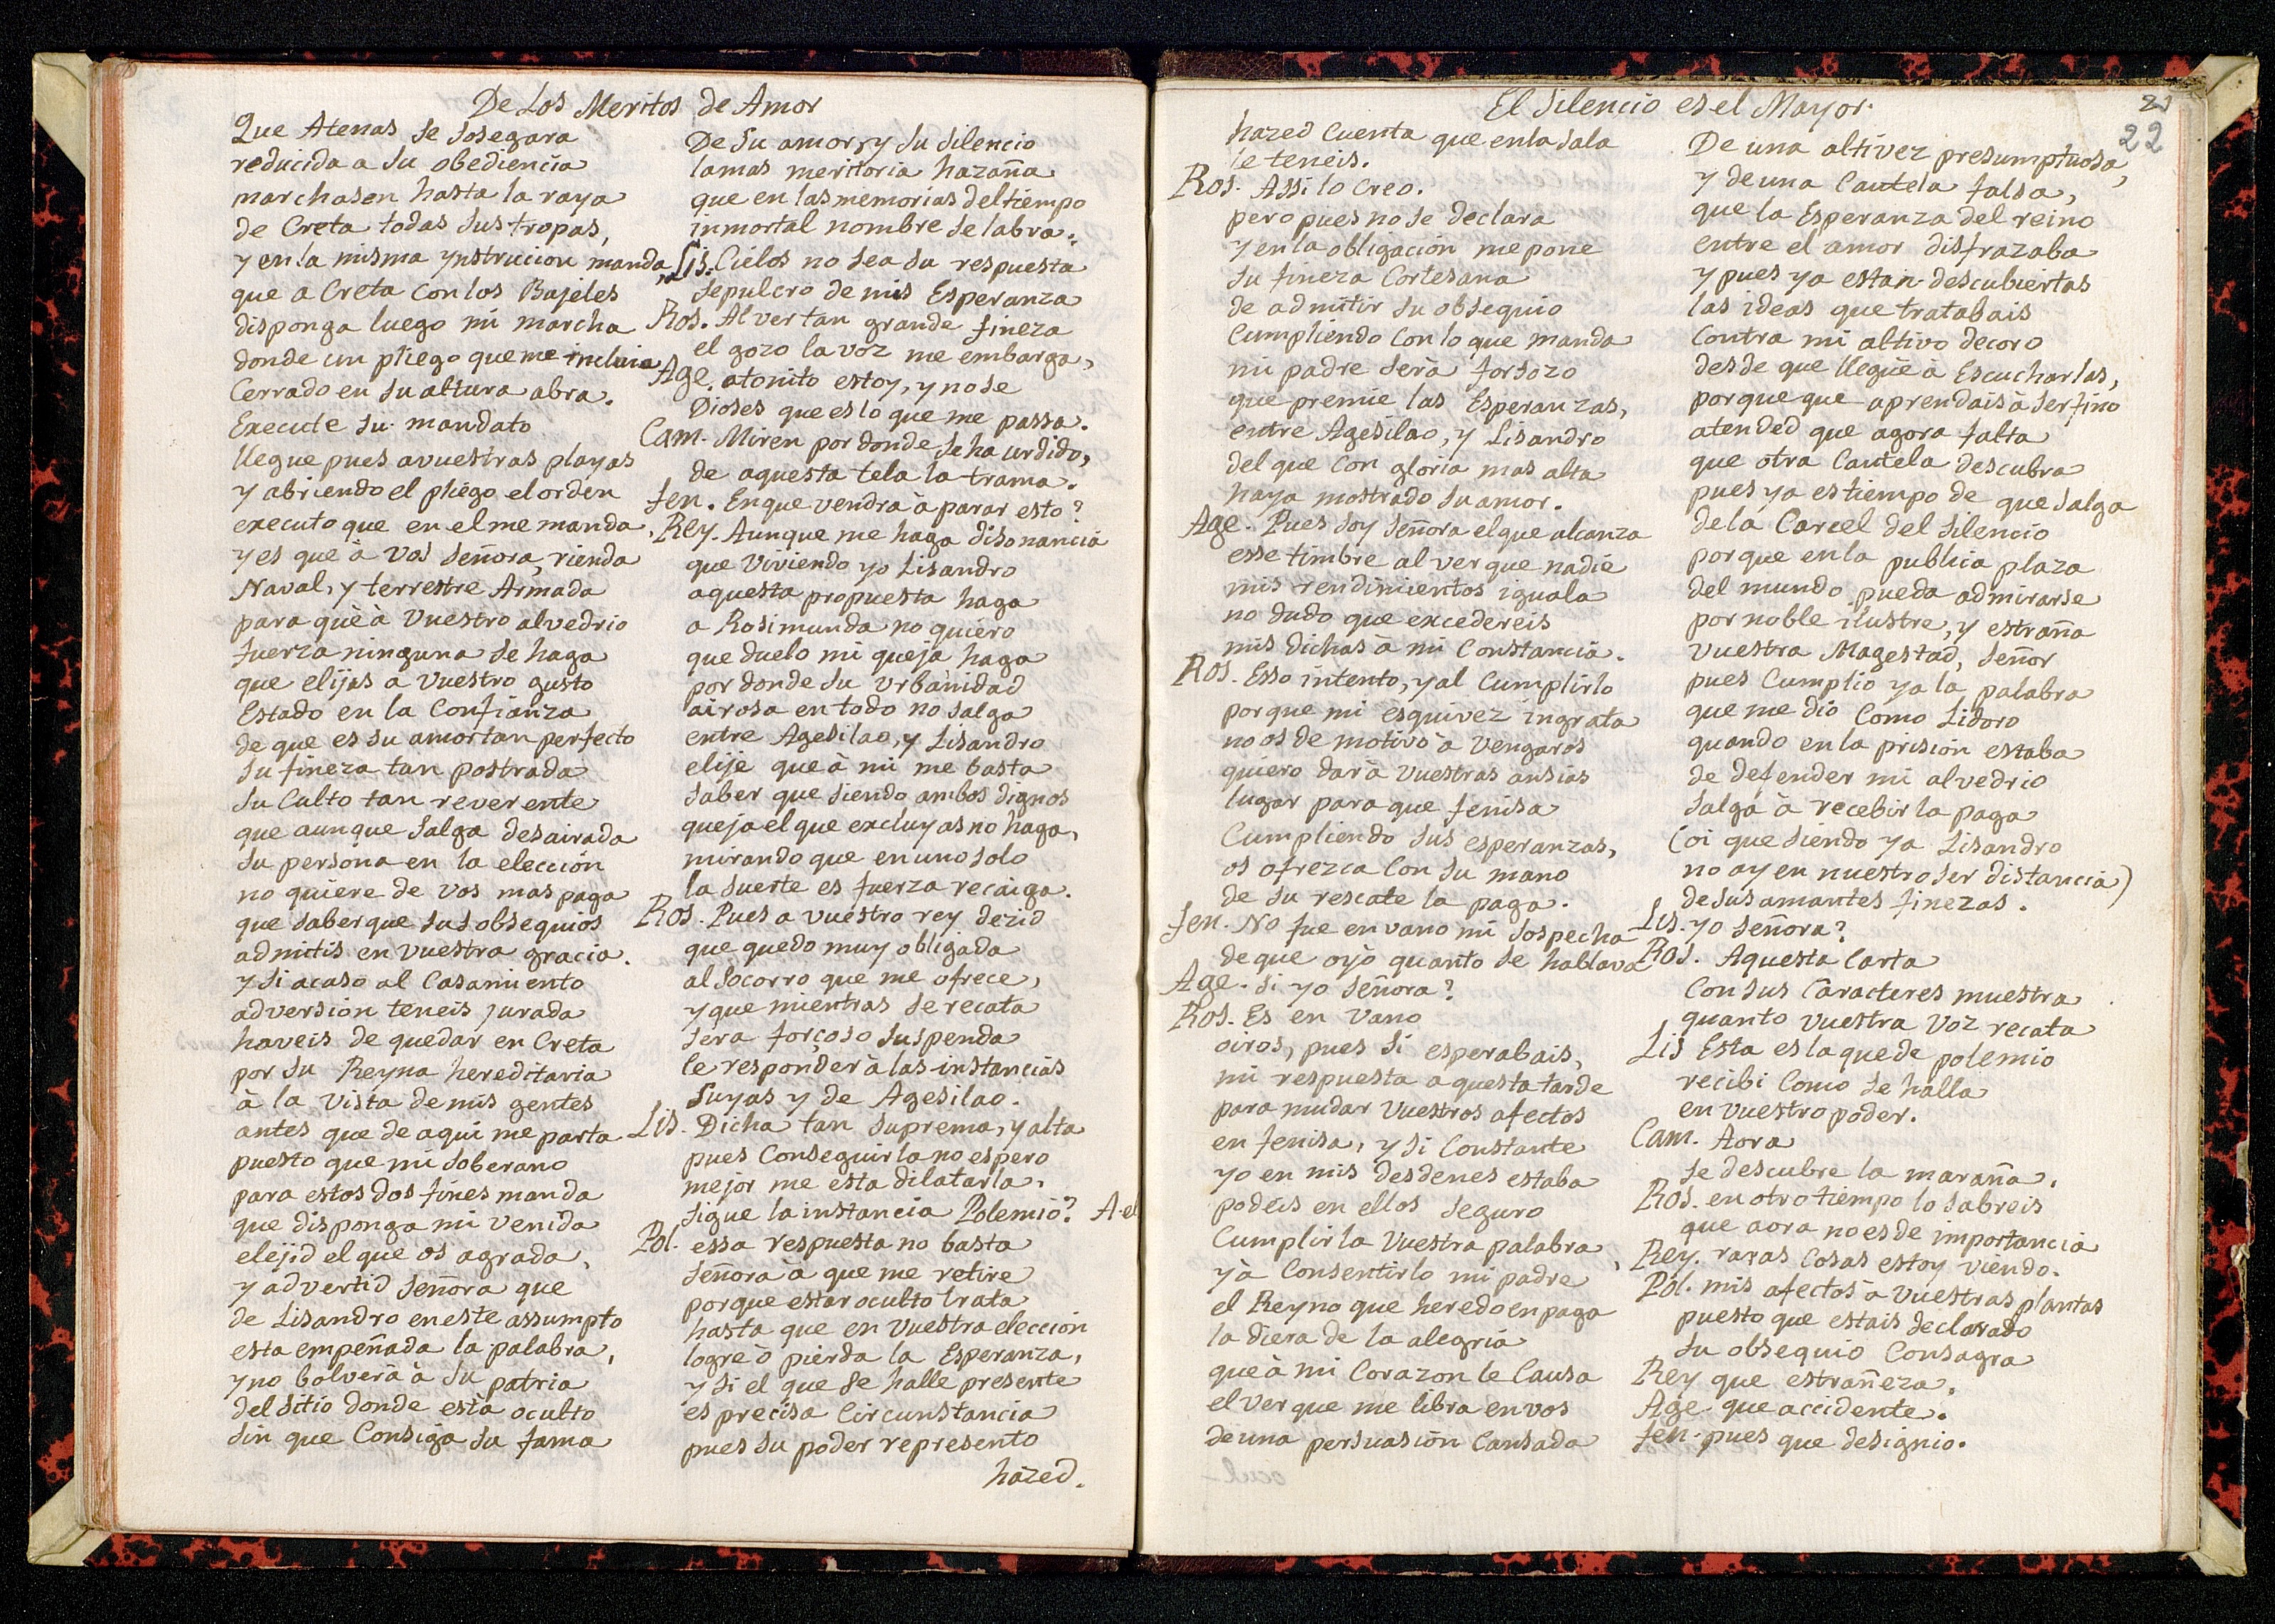 De Los Meritos de Amor
Que Atenas se sosegara
reducida a su obediencia
marchasen hasta la raya
de Creta todas sus tropas,
y en la misma ynstrucion manda
que a Creta con los Bajeles
disponga luego mi marcha
donde un pliego que me incluia
Cerrado en su altura abra.
Execute su mandato
llegue pues a vuestras playas
y abriendo el pliego el orden
executo que en el me manda,
y es que à vos señora, rienda
Naval, y terrestre Armada
para què à vuestro alvedrio
fuerza ninguna se haga
que elijas a vuestro gusto
Estado en la Confianza
de que es su amor tan perfecto
su fineza tan postrada
su Culto tan reverente
que aunque salga desairada
su persona en la elección
no quiere de vos mas paga
que saber que sus obsequios
admitis en vuestra gracia.
y si acaso al Casamiento
adversion teneis jurada
haveis de quedar en Creta
por su Reyna hereditaria
à la vista de mis gentes
antes que de aqui me parta
puesto que mi soberano
para estos dos fines manda
que disponga mi venida
elejid el que os agrada,
y advertid señora que
de Lisandro en este assumpto
esta empeñada la palabra,
y no bolverà à su patria
del sitio donde està oculto
sin que Consiga su fama
De su amor, y su silencio
la mas meritoria hazaña
que en las memorias del tiempo
inmortal nombre se labra.
Lis. Cielos no sea su respuesta
sepulcro de mis Esperanza
Ros. Al ver tan grande fineza
el gozo la voz me embarga,
Age. atonito estoy, y no se
Dioses que es lo que me passa.
Cam. Miren por donde se ha urdido,
de aquesta tela la trama.
fen. En que vendra à parar esto?
Rey. Aunque me haga disonancia
que viviendo yo Lisandro
aquesta propuesta haga
a Rosimunda no quiero
que duelo mi queja haga
por donde su vrbanidad
airosa en todo no salga
entre Agesilao, y Lisandro
elije que à mi me basta
saber que siendo ambos dignos
queja el que excluyas no haga,
mirando que en uno solo
la suerte es fuerza recaiga.
Ros. Pues a vuestro rey dezid
que quedo muy obligada
al socorro que me ofrece,
y que mientras se recata
sera forçoso suspenda
le responder à las instancias
suyas y de Agesilao.
Lis. Dicha tan suprema, y alta
pues Conseguirla no espero
mejor me esta dilatarla.
sigue la instancia Polemio? A el
Pol. essa respuesta no basta
señora à que me retire
porque estar oculto trata
hasta que en vuestra eleccion
logre ò pierda la Esperanza,
y si el que se halle presente
es precisa Circunstancia
pues su poder represento
hazed.
El Silencio es el Mayor.
21
22
hazed Cuenta que en la sala
le teneis.
Ros. Assi lo Creo.
pero pues no se declara
y en la obligación me pone
su fineza Cortesana
de admitir su obsequio
Cumpliendo con lo que manda
mi padre serà forsozo
que premie las Esperanzas,
entre Agesilao, y Lisandro
del que con gloria mas alta
haya mostrado su amor.
Age. Pues soy señora el que alcanza
esse timbre al ver que nadie
mis rendimientos iguala
no dudo que excedereis
mis dichas à mi Constancia.
Ros. Esso intento, y al Cumplirlo
porque mi esquivez ingrata
no os de motivo à vengaros
quiero dar à vuestras ansias
lugar para que fenisa
Cumpliendo sus esperanzas,
os ofrezca con su mano
de su rescate la paga.
fen. No fue en vano mi sospecha
de que oyò quanto se hablava
Age. si yo señora?
Ros. Es en vano
oiros, pues si esperabais,
mi respuesta aquesta tarde
para mudar vuestros afectos
en fenisa, y si Constante
yo en mis desdenes estaba
podeis en ellos seguro
Cumplir la vuestra palabra,
y à Consentirlo mi padre
el Reyno que heredo en paga
la diera de la alegria
que à mi Corazon le Causa
el ver que me libra en vos
de una persuasion Cansada
De una altivez presumptuosa,
y de una Cautela falsa,
que la Esperanza del reino
entre el amor disfrazaba
y pues ya estan descubiertas
las ideas que tratabais
Contra mi altivo decoro
desde que lleguè à Escucharlas,
porque que aprendais à ser fino
atended que agora falta
que otra Cautela descubra
pues ya es tiempo de que salga
de la Carcel del silencio
porque en la publica plaza
del mundo pueda admirarse
por noble ilustre, y estraña
vuestra Magestad, señor
pues Cumplio ya la palabra
que me dio Como Lidoro
quando en la prision estaba
de defender mi alvedrio
salga à recebir la paga
(oi que siendo ya Lisandro
no ay en nuestro ser distancia)
de sus amantes finezas.
Lis. yo señora?
Ros. Aquesta Carta
Con sus Caracteres muestra
quanto vuestra voz recata
Lis Esta es la que de polemio
recibi Como se halla
en vuestro poder.
Cam. Aora
se descubre la maraña.
Ros. en otro tiempo lo sabreis
que aora no es de importancia
Rey. raras Cosas estoy viendo.
Pol. mis afectos à vuestras plantas
puesto que estais declarado
su obsequio Consagra
Rey que estrañeza.
Age. que accidente.
fen. pues que designio.